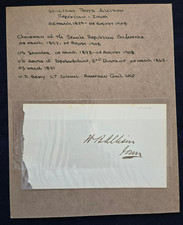 Senator Boyd Allison
Republican - Iowa
Chairman of the Senate Republican Conference
04 March 1897 - 04 August 1908
US Senator 04 March 1873 - 04 August 1908
US House of Representatives, 3rd District 04 March 1863 -
03 March 1871
Lt Colonel American Civil War
W B Allison
Iowa